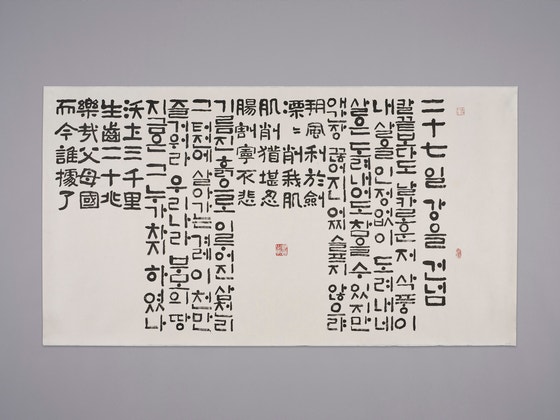 二十七일 강을 건넘
칼끝보다도 날카로운 저 삭풍이
내 살을 인정없이 도려내네
살은 도려내어도 참을 수 있지만
애간장 끊어지니 어찌 슬프지 않으랴
朔風利於劒
凓〻削我肌
肌削猶堪忍
腸割寧不悲
기름진 흙으로 이루어진 삼천리
그 터전에 살아가는 겨레 이천만
즐거워라 우리나라 부모의 땅
지금은 그 누가 차지 하였나
沃土三千里
生齒二十兆
樂哉父母國
而今誰據了